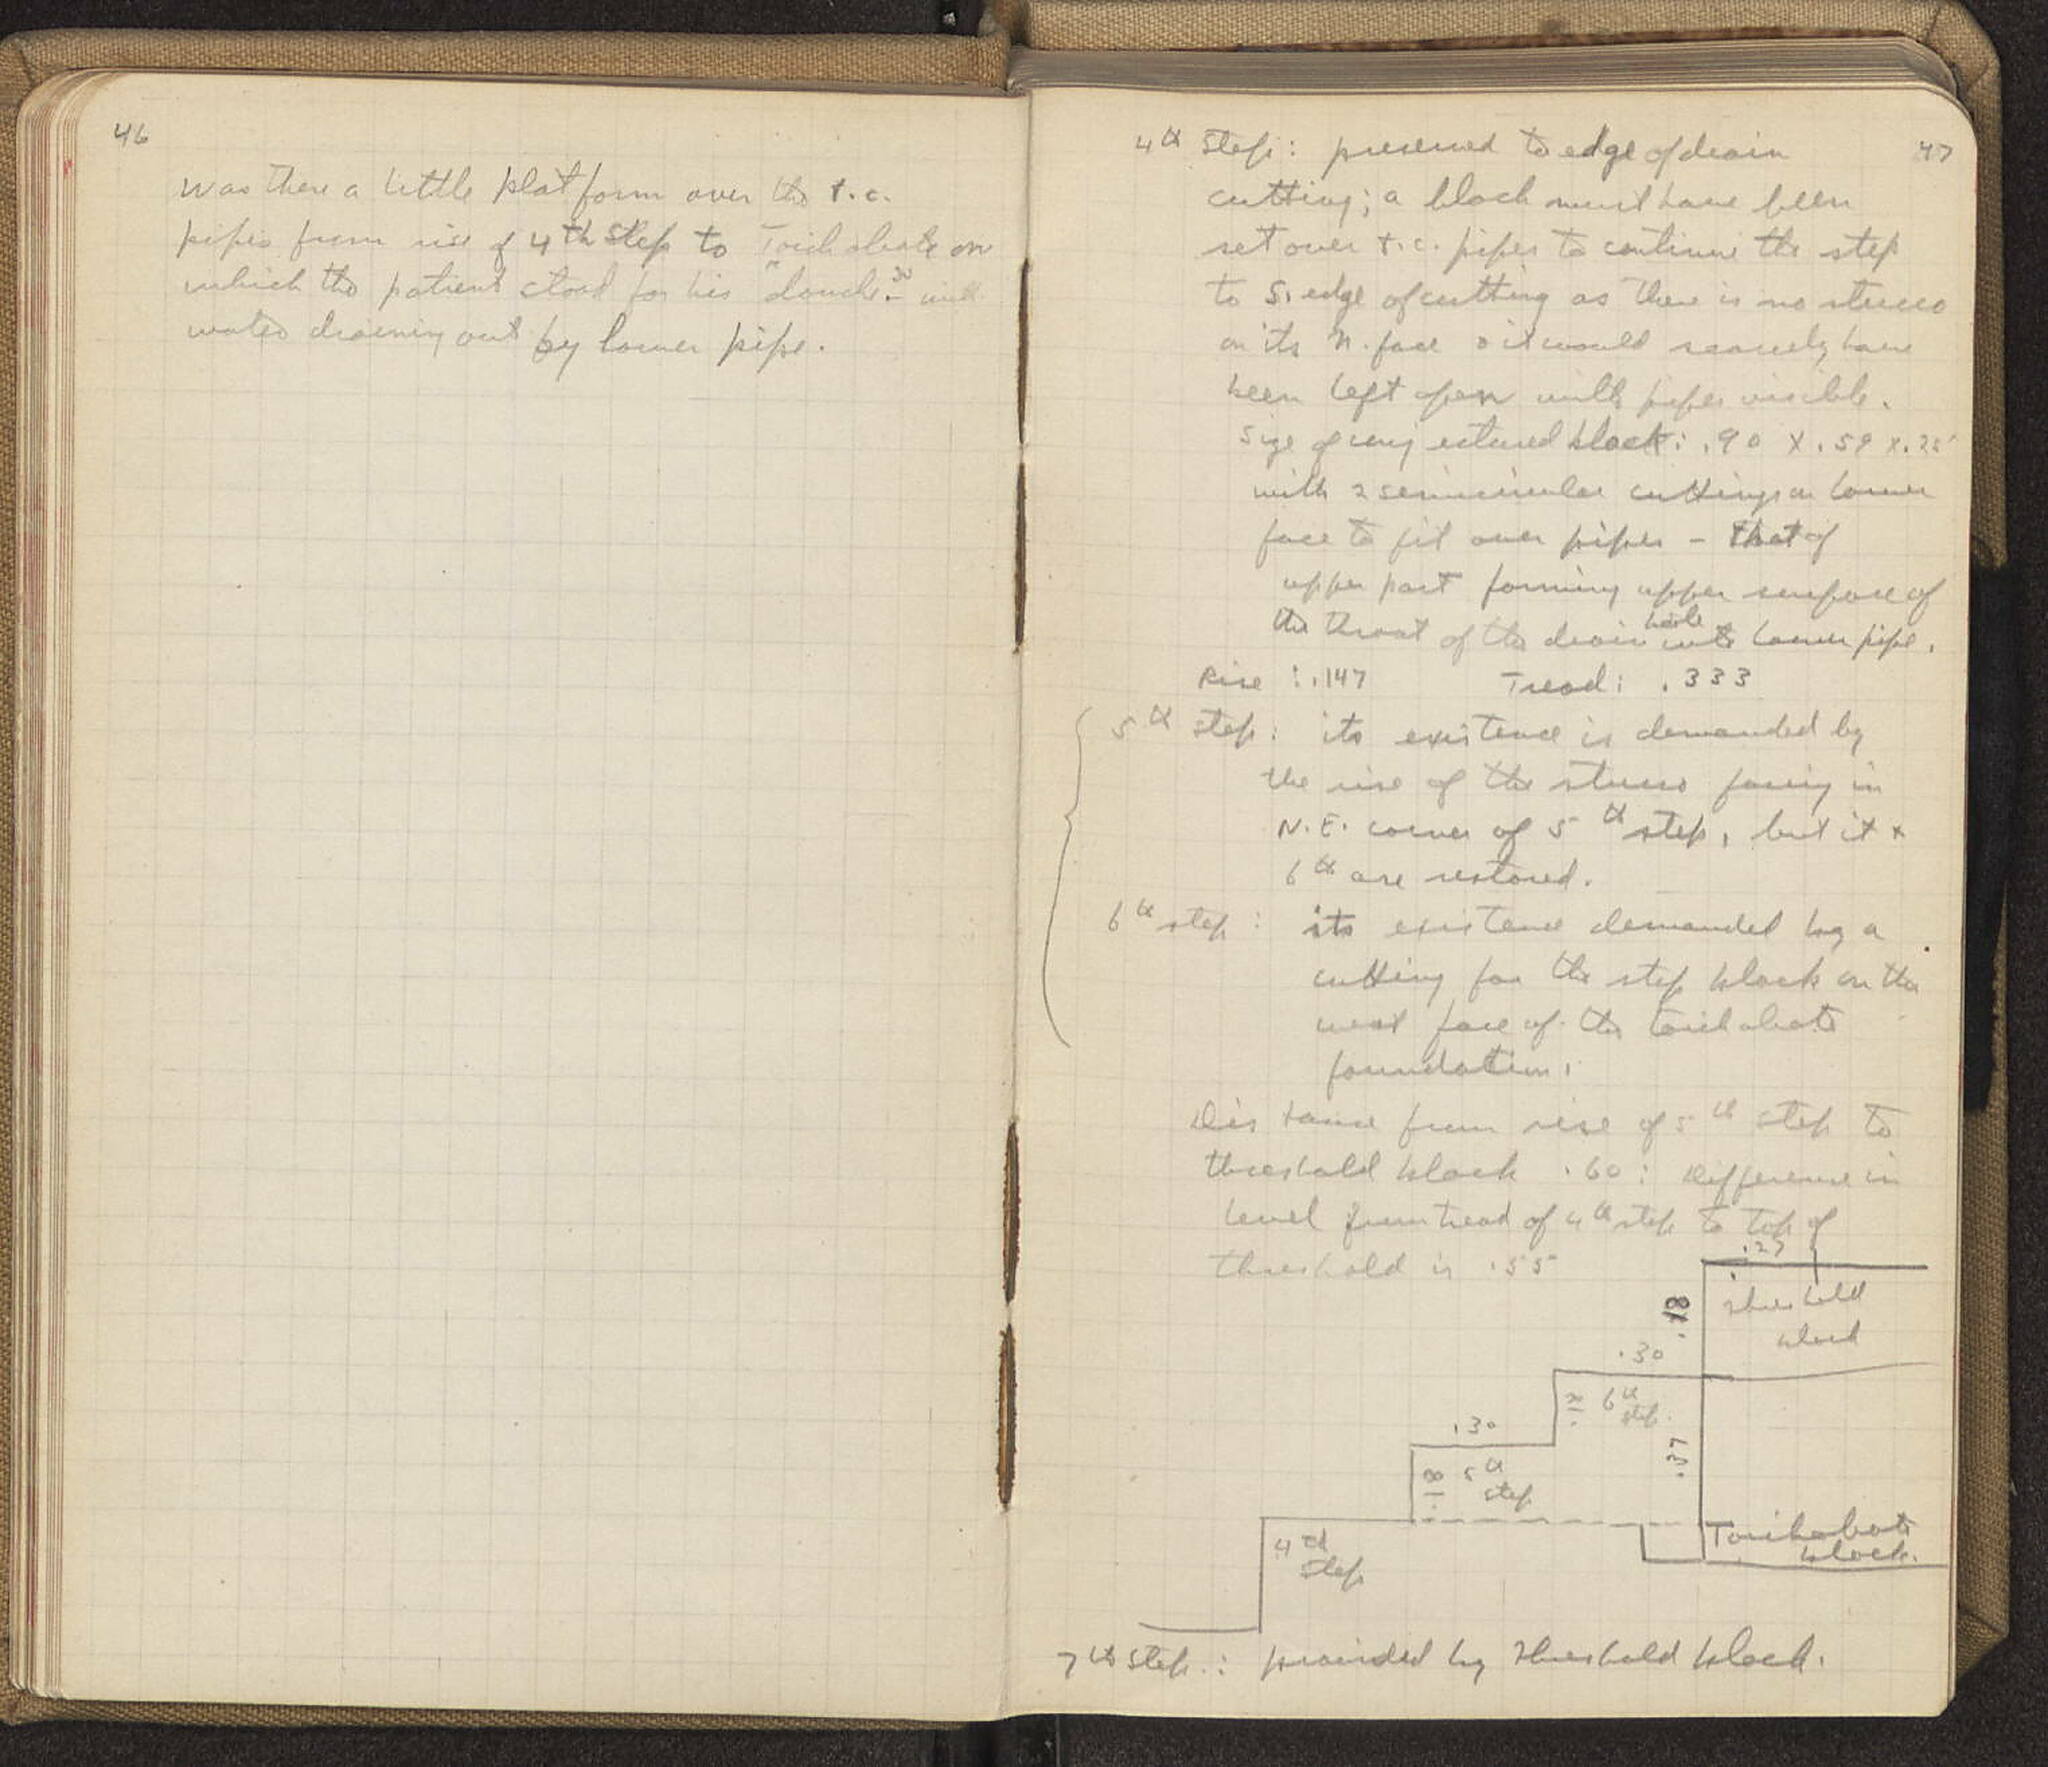 46
was there a little platform over the t.c.
pipes from rise of 4th Step to Toichobate on
which the patient stood for his "douche" - with
water draining out by lower pipe.
47
4th Step: preserved to edge of drain
cutting; a block must have been
set over t.c. pipes to continue the step
to S. edge of cutting as there is no stucco
on its N. face & it would scarcely have
been left open with pipes visible.
Size of block: .90 x .59 x .25
with 2 semicircular cuttings on lower
face to fit over pipes - that of
upper part forming upper surface of
the throat of the drain hole into lower pipe.
Rise : .147 Tread: .333
5th step: its existence is demanded by
the rise of the stucco facing in
N.E. corner of 5th step, but it +
6th are restored.
6th step: its existence demanded by a
cutting for the step block on the
west face of the toichobate
foundation.
Distance from rise of 5th step to
threshold block .60: Difference in
level from tread of 4th step to top of
threshold is .55
.27
threshold
block
.18
.30
6th
step.
.37
.30
5th
step
Toichobate
block.
4th
Step
7th Step.: provided by threshold block.